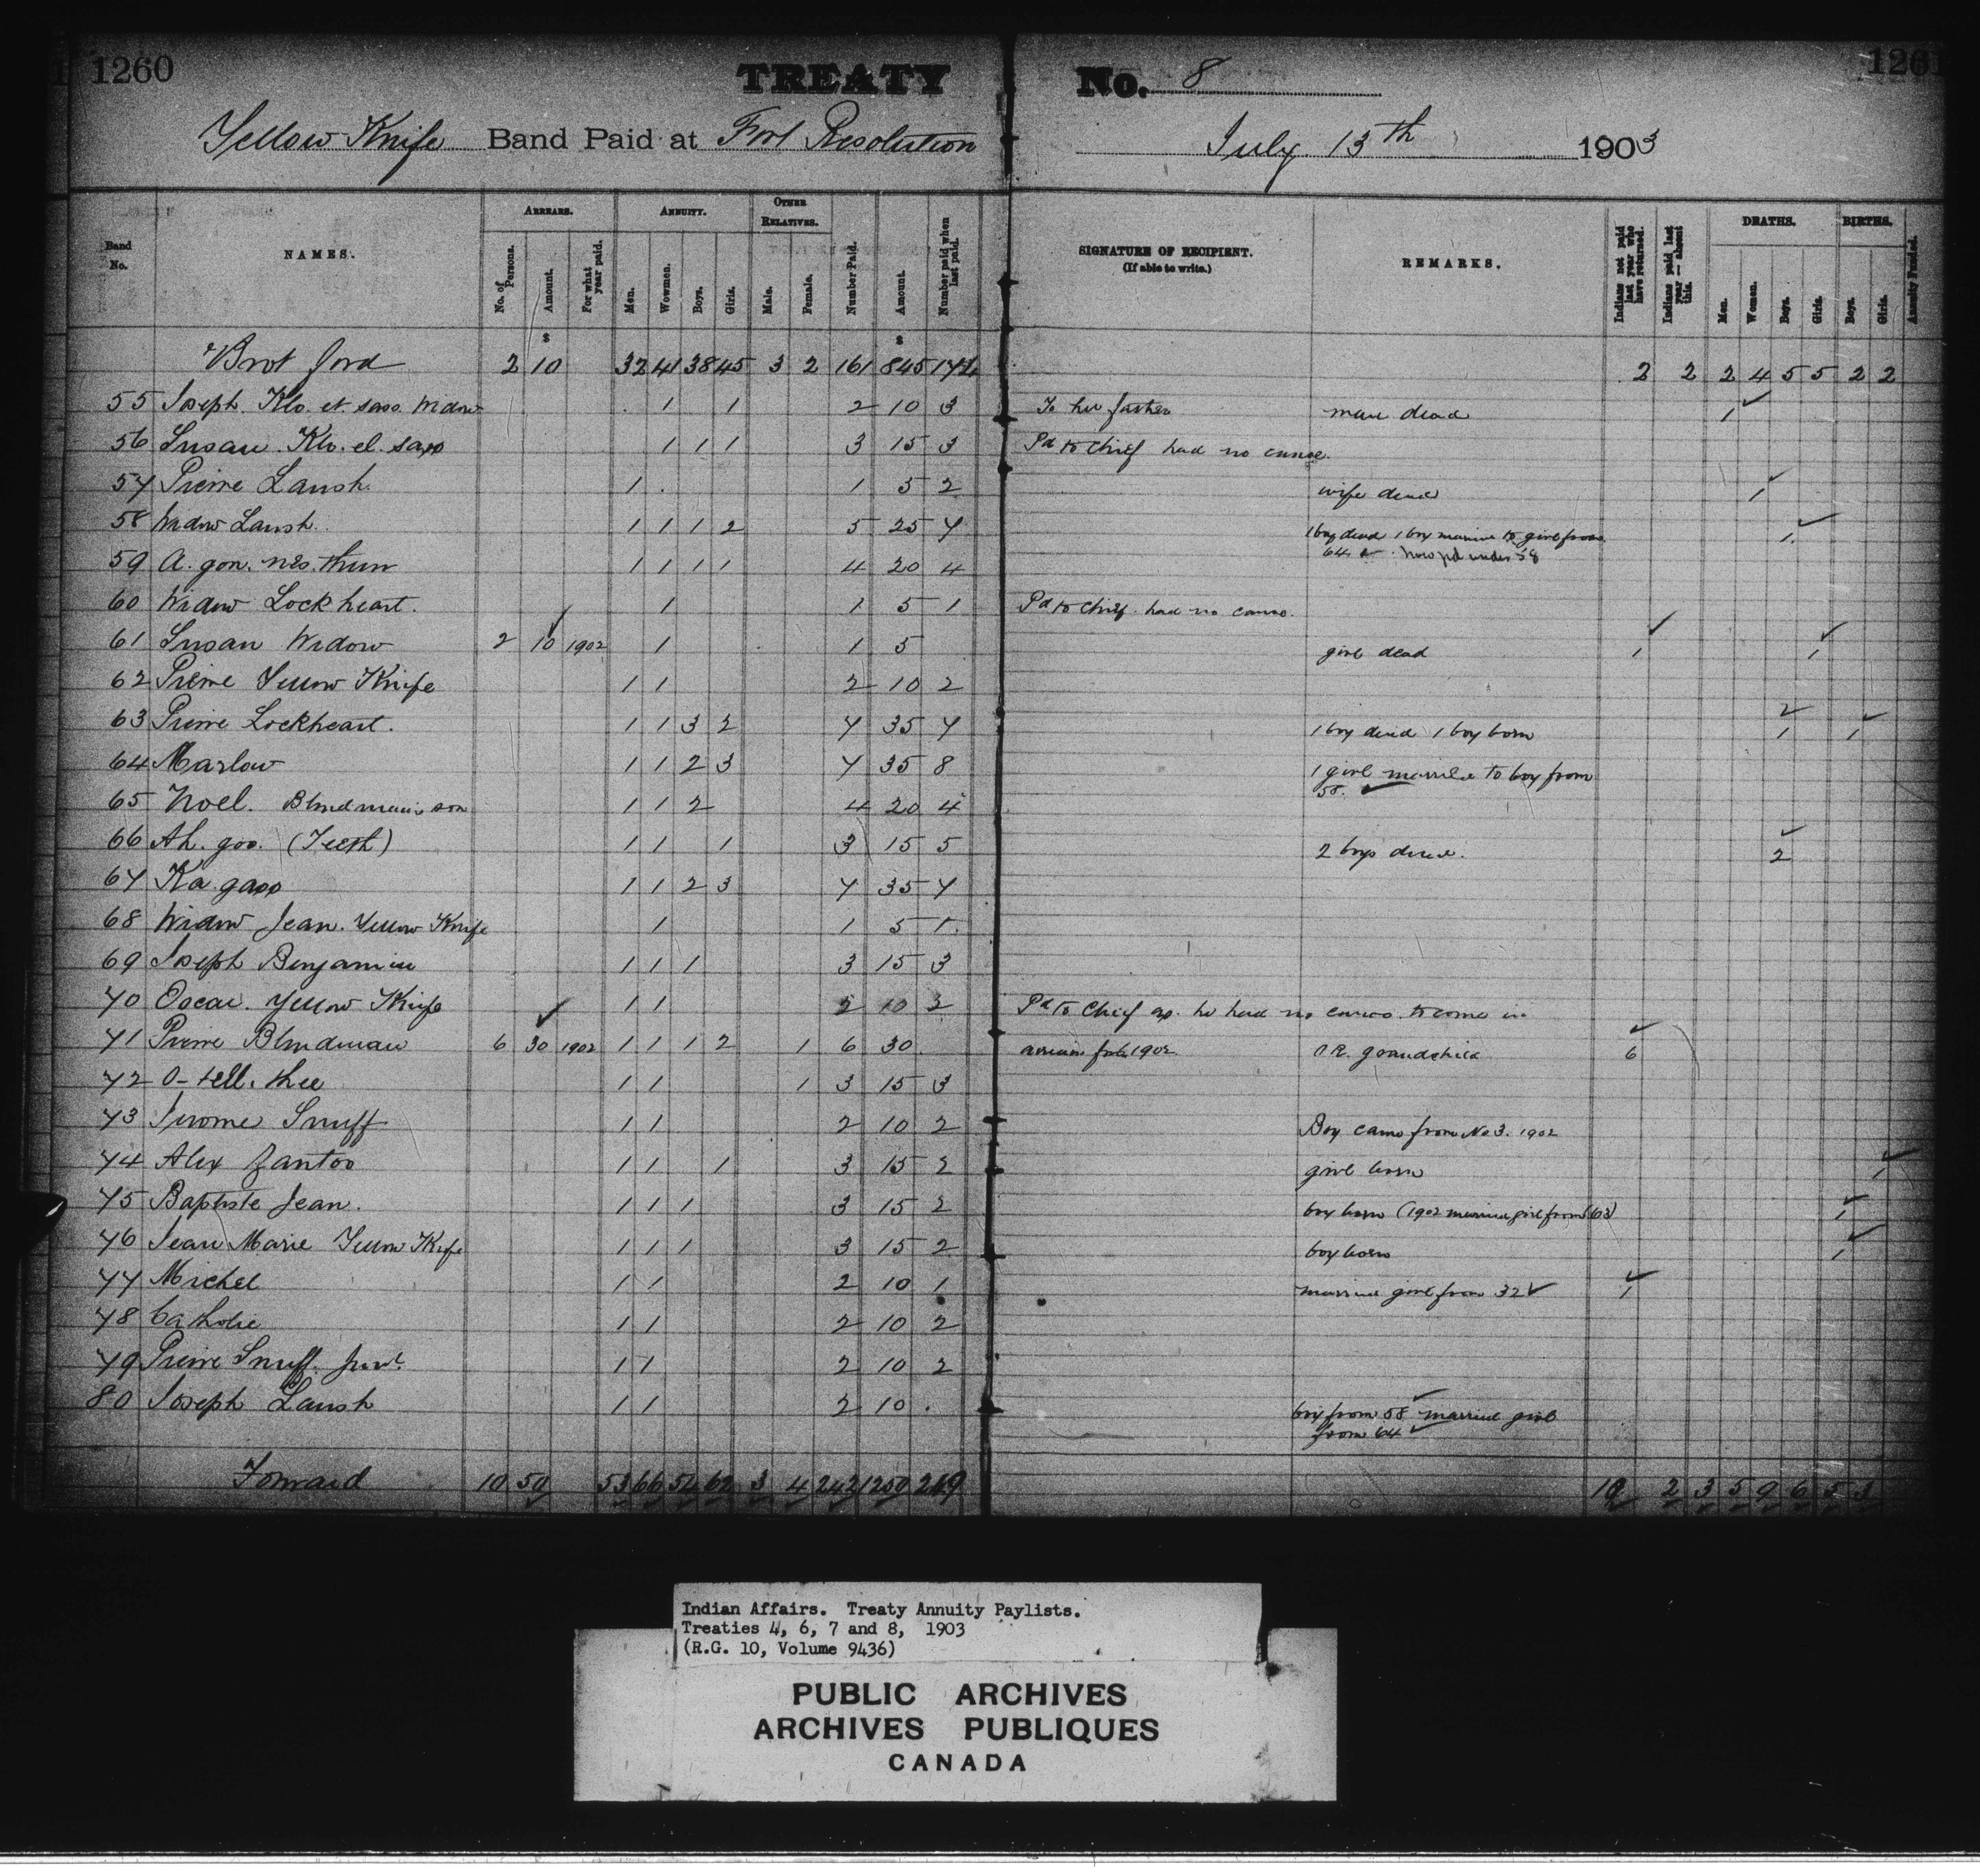 1260
TREATY No. 8
1261
Yellow Knife Band Paid at Fort Resolution July 13th 1903
Band No. NAMES. ARREARS. No. of Persons. Amount. For what year paid. ANNUITY. Men. Wowmen. Boys. Girls. OTHER RELATIVES. Male. Female. Number Paid. Amount. Number paid when last paid. SIGNATURE OF RECIPIENT. (If able to write.) REMARKS. Indians not paid last year who have returned. Indians paid last year — absent this. DEATHS. Men. Women. Boys. Girls. BIRTHS. Boys. Girls. Annuity Funded.
$ $
Brot ford 2 10 32 41 38 45 3 2 161 845 174 2 2 2 4 5 5 2 2
55 Joseph. Klo. et. saso. Widow 1 1 2 10 3 To her father man dead 1
56 Susan. Klo. el. saso 1 1 1 3 15 3 Pd to Chief had no canoe.
57 Pierre Lansh. 1 1 5 2 wife dead 1
58 Widow Lansh. 1 1 1 2 5 25 7 1 boy dead 1 boy married to girl from 1
64 now pd under 58
59 A. gon. nes. thun 1 1 1 1 4 20 4
60 Widow Lockheart. 1 1 5 1 Pd to Chief. had no canoe.
61 Susan Widow 2 10 1902 1 1 5 girl dead 1 1
62 Pierre Yellow Knife 1 1 2 10 2
63 Pierre Lockheart. 1 1 3 2 7 35 7 1 boy dead 1 boy born 2 1 1
64 Marlow 1 1 2 3 7 35 8 1 girl married to boy from
58.
65 Noel. Blindman's son 1 1 2 4 20 4
66 Ah. goo. (Teeth) 1 1 1 3 15 5 2 boys dead. 2
67 Ka. gaso 1 1 2 3 7 35 7
68 Widow Jean. Yellow Knife 1 1 5 1
69 Joseph Benjamin 1 1 1 3 15 3
70 Oscar. Yellow Knife 1 1 2 10 2 Pd to Chief as he had no canoe to come in
71 Pierre Blindman 6 30 1902 1 1 1 2 1 6 30 arrears for 1902 O.R. grandchild 6
72 O-tell. thee 1 1 1 3 15 3
73 Jerome Snuff 1 1 2 10 2 Boy came from No 3. 1902
74 Alex Zantoo 1 1 1 3 15 2 girl born 1
75 Baptiste Jean. 1 1 1 3 15 2 boy born (1902 married girl from 63) 1
76 Jean Marie Yellow Knife 1 1 1 3 15 2 boy born 1
77 Michel 1 1 2 10 1 married girl from 32 1
78 Catholic 1 1 2 10 2
79 Pierre Snuff. Junr. 1 1 2 10 2
80 Joseph Lansh 1 1 2 10 boy from 58 married girl
from 64
Forward 10 50 53 66 54 62 3 4 242 1250 249 10 2 3 5 9 6 5 3
Indian Affairs. Treaty Annuity Paylists.
Treaties 4, 6, 7 and 8, 1903
(R.G. 10, Volume 9436)
PUBLIC ARCHIVES
ARCHIVES PUBLIQUES
CANADA